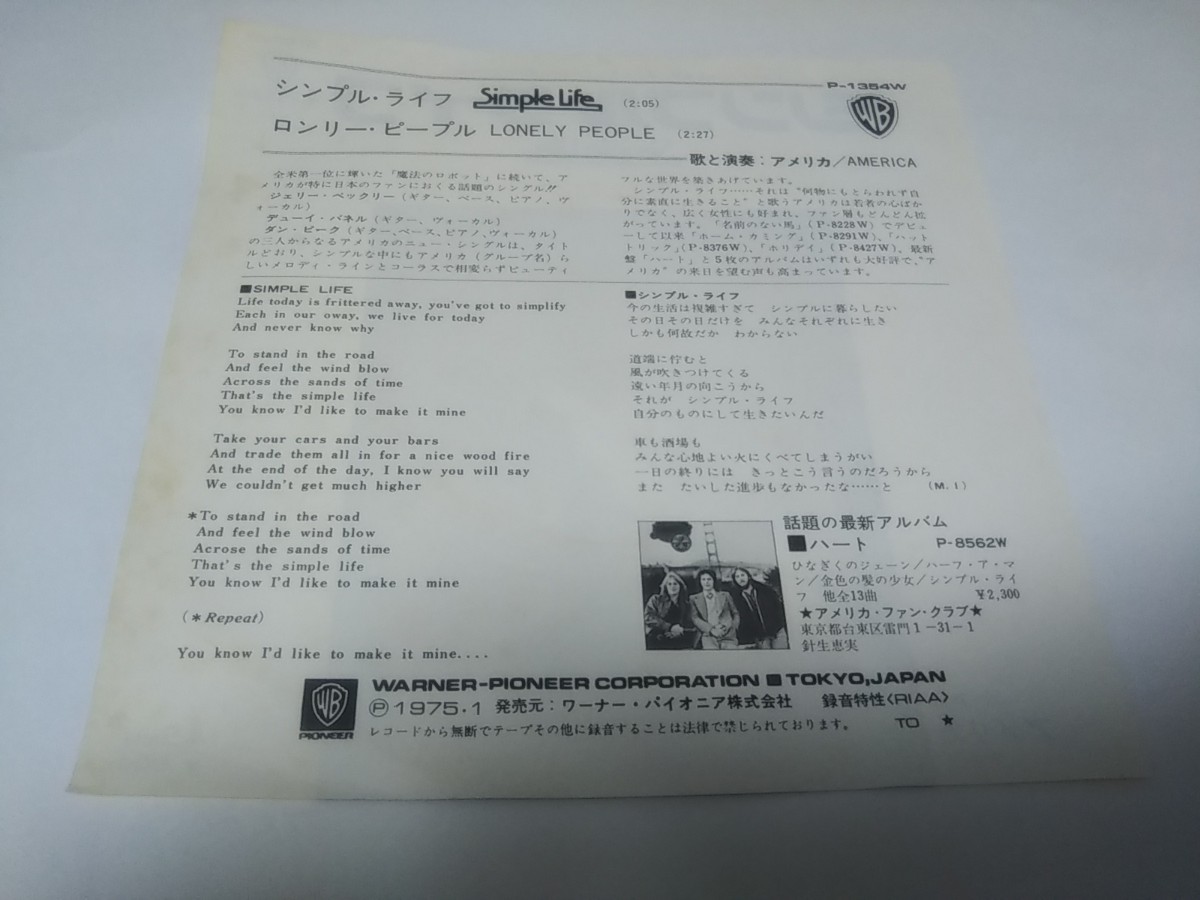 P-1354W
シンプル・ライフ Simple Life (2:05)
WB
ロンリー・ピープル LONELY PEOPLE (2:27)
歌と演奏：アメリカ／AMERICA
全米第一位に輝いた「魔法のロボット」に続いて、ア
メリカが特に日本のファンにおくる話題のシングル!!
ジェリー・ベックリー（ギター、ベース、ピアノ、ヴ
ォーカル）
デューイ・バネル（ギター、ヴォーカル）
ダン・ピーク（ギター、ベース、ピアノ、ヴォーカル）
の三人からなるアメリカのニュー・シングルは、タイト
ルどおり、シンプルな中にもアメリカ（グループ名）ら
しいメロディ・ラインとコーラスで相変らずビューティ
フルな世界を築きあげています。
シンプル・ライフ……それは“何物にもとらわれず自
分に素直に生きること”と歌うアメリカは若者の心ばか
りでなく、広く女性にも好まれ、ファン層もどんどん拡
がっています。「名前のない馬」（P-8228W）でデビュ
ーして以来「ホーム・カミング」（P-8291W）、「ハット
トリック」（P-8376W）、「ホリデイ」（P-8427W）、最新
盤「ハート」と5枚のアルバムはいずれも大好評で、“ア
メリカ”の来日を望む声も高まっています。
■SIMPLE LIFE
Life today is frittered away, you've got to simplify
Each in our oway, we live for today
And never know why
To stand in the road
And feel the wind blow
Across the sands of time
That's the simple life
You know I'd like to make it mine
Take your cars and your bars
And trade them all in for a nice wood fire
At the end of the day, I know you will say
We couldn't get much higher
*To stand in the road
And feel the wind blow
Acrose the sands of time
That's the simple life
You know I'd like to make it mine
(*Repeat)
You know I'd like to make it mine....
■シンプル・ライフ
今の生活は複雑すぎて　シンプルに暮らしたい
その日その日だけを　みんなそれぞれに生き
しかも何故だか　わからない
道端に佇むと
風が吹きつけてくる
遠い年月の向こうから
それが　シンプル・ライフ
自分のものにして生きたいんだ
車も酒場も
みんな心地よい火にくべてしまうがい
一日の終りには　きっとこう言うのだろうから
また　たいした進歩もなかったな……と　（M. I）
話題の最新アルバム
■ハート　P-8562W
ひなぎくのジェーン／ハーフ・ア・マ
ン／金色の髪の少女／シンプル・ライ
フ　他全13曲　¥2,300
★アメリカ・ファン・クラブ★
東京都台東区雷門1-31-1
針生恵実
WB PIONEER
WARNER-PIONEER CORPORATION ■ TOKYO, JAPAN
Ⓟ1975・1 発売元：ワーナー・パイオニア株式会社　録音特性〈RIAA〉
レコードから無断でテープその他に録音することは法律で禁じられております。　TO ★